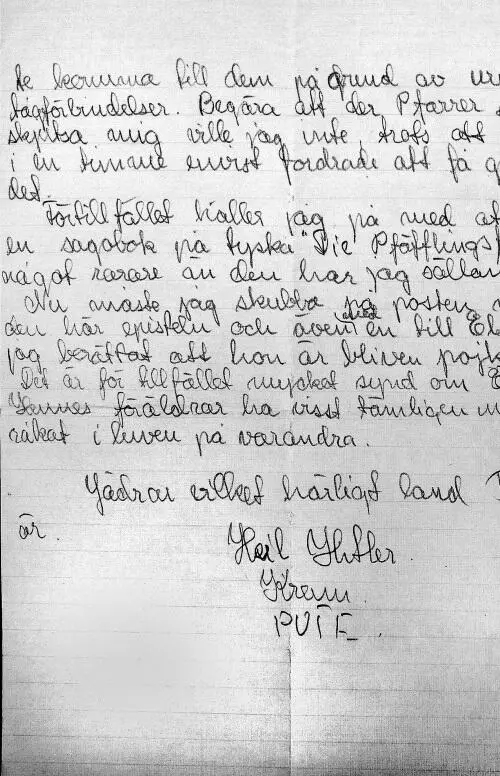 te komma till dem på grund av ur
tågförbindelser. Begära att der Pfarrer
skjutsa mig ville jag inte, trots att
i en timme envist fordrade att få g
det.
Förtillfället håller jag på med at
en sagobok på tyska "Die Pfäfflings,
något rarare än den har jag sällan
Nu måste jag skubba på posten
den här episteln och även med en till El
jag berättat att hon är bliven pojk
Det är för tillfället mycket synd om
Hennes föräldrar ha visst tämligen
råkat i luven på varandra.
Jädrar vilket härligt land T
är.
Heil Hitler.
Kram
PUTE.